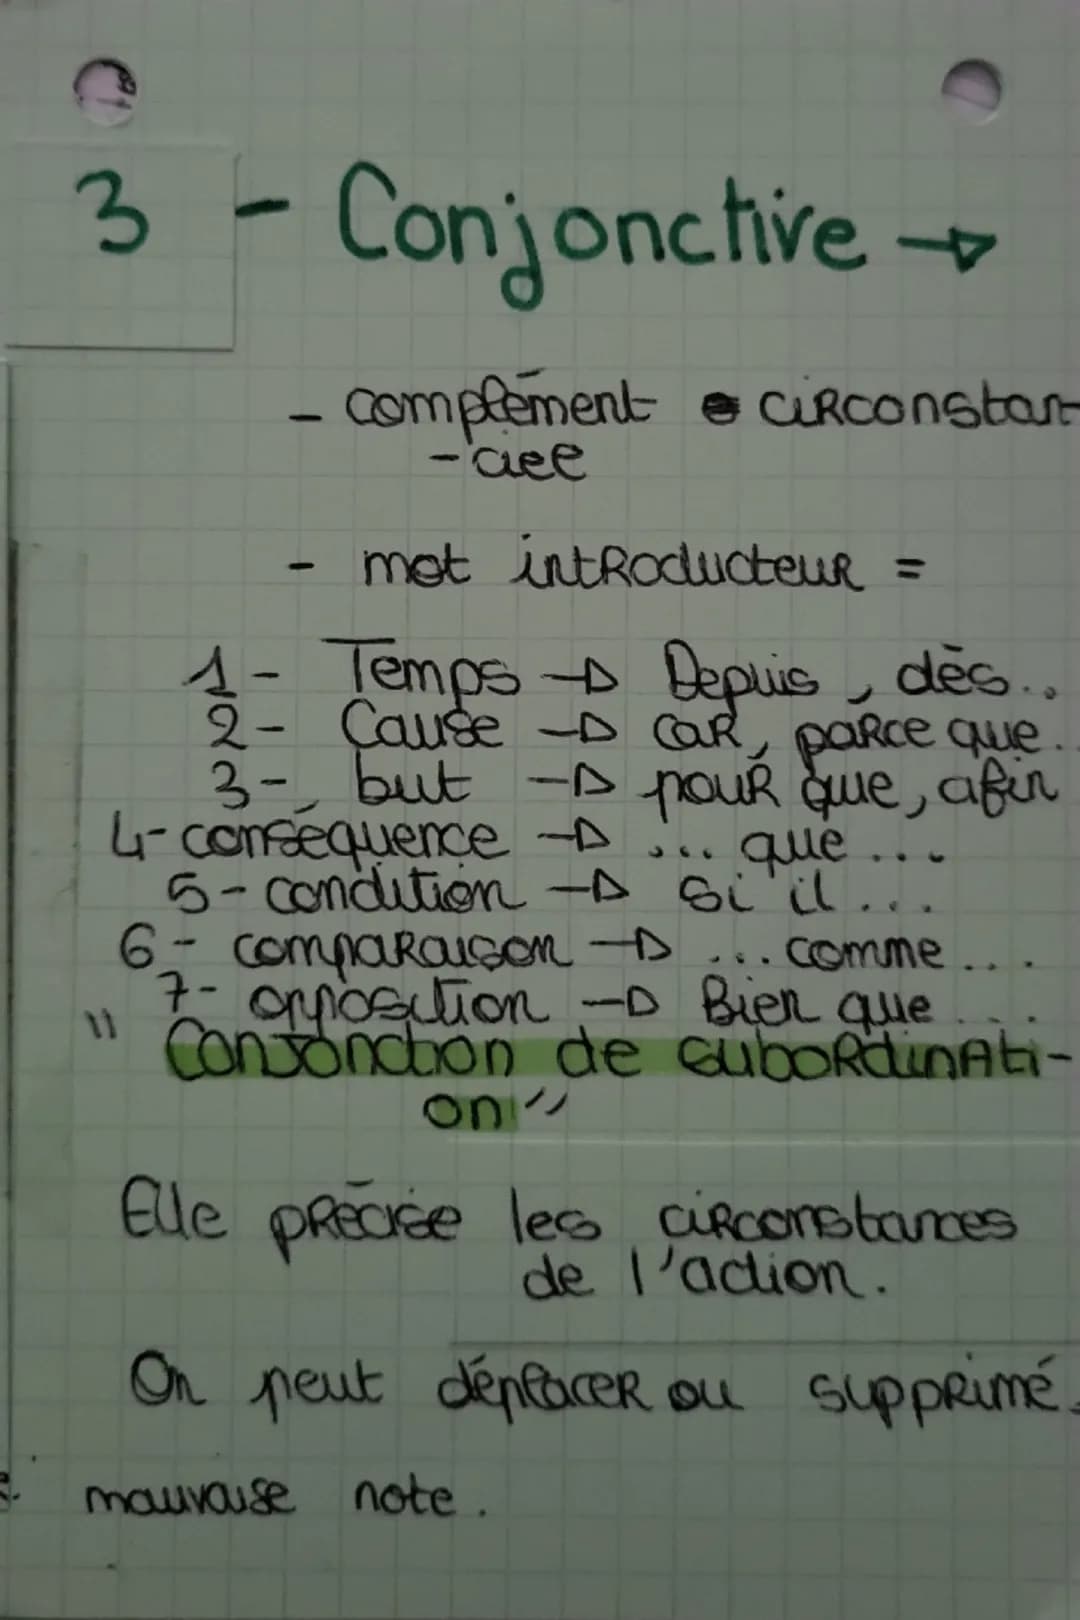 3 - Conjonctive →
- complément circonstan
-ciel
- mot introducteur =
1- Temps → Depuis, dès..
2- Cause → car, parce que..
3- but → pour que, afin
4- conséquence → ... que ...
5- condition → si il ...
6- comparaison → ... comme ...
7- opposition → Bien que ...
"Conjonction de subordinati-
on"
Elle précise les circonstances
de l'action.
On peut déplacer ou supprimé.
mauvaise note.